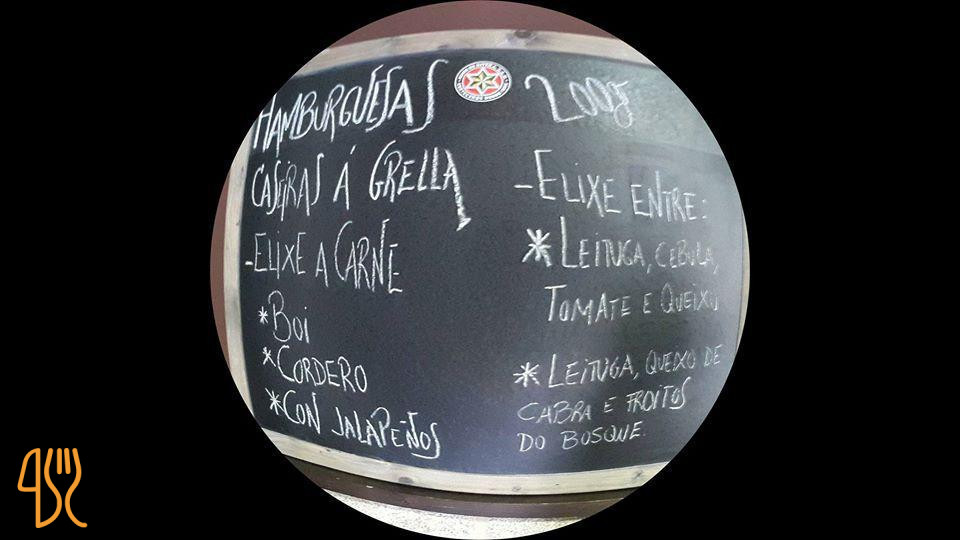 HAMBURGUESAS
CASEIRAS Á GRELLA
-ELIXE A CARNE
*BOI
*CORDERO
*CON JALAPEÑOS
200g
-ELIXE ENTRE:
*LEITUGA, CEBOLA,
TOMATE E QUEIXO
*LEITUGA, QUEIXO DE
CABRA E FROITOS
DO BOSQUE.